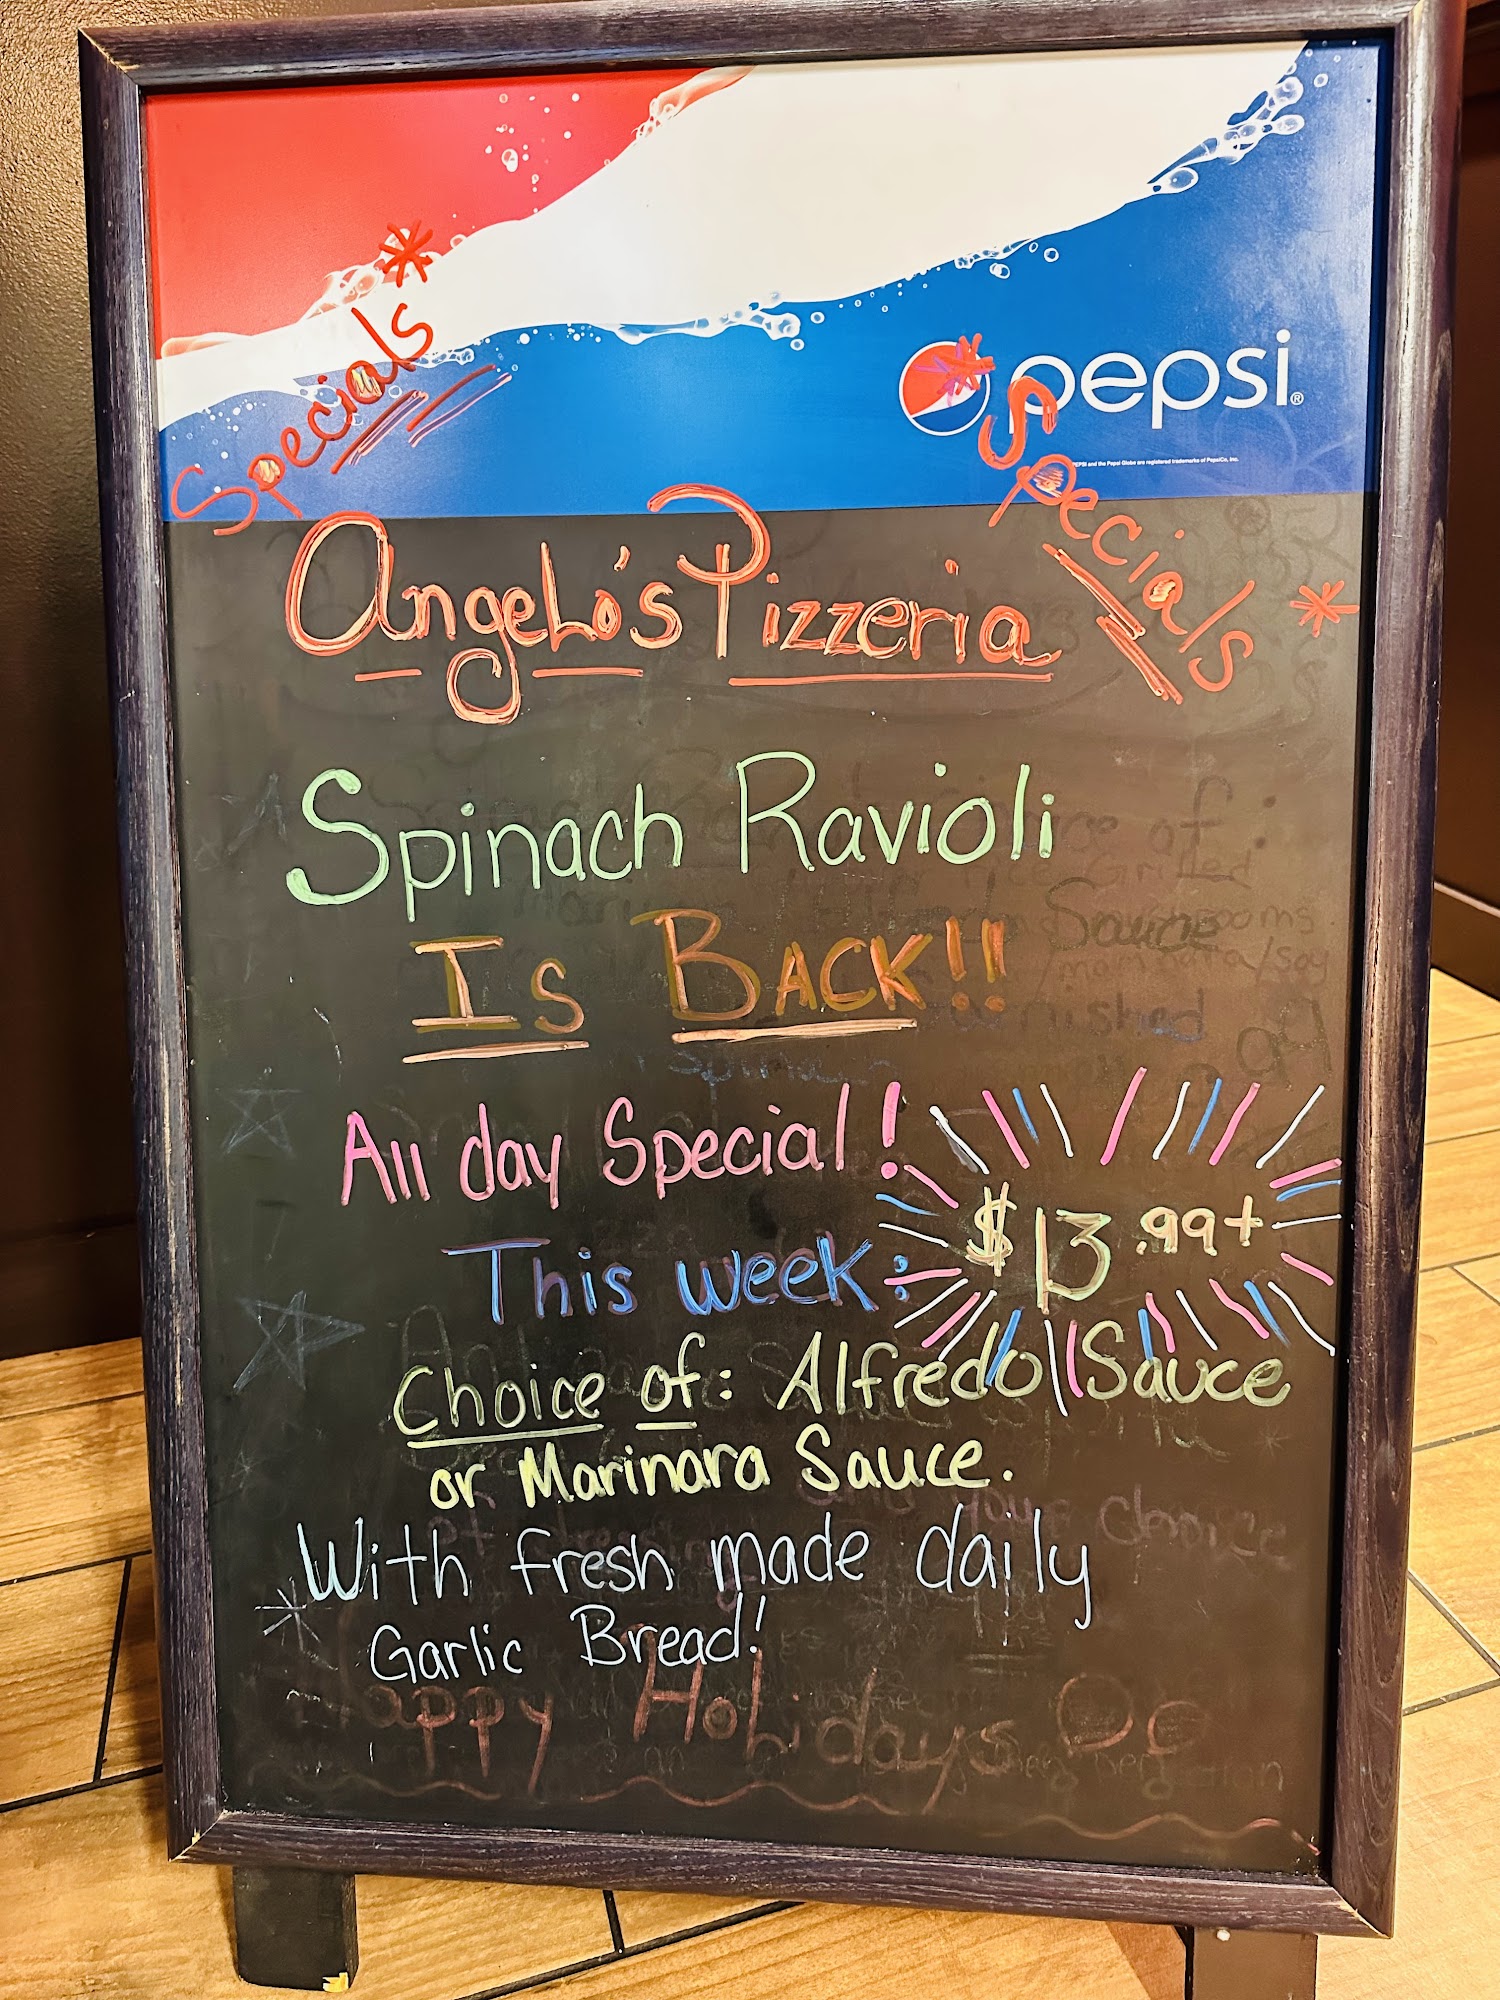 Specials*
pepsi®
*Specials*
PEPSI and the Pepsi Globe are registered trademarks of PepsiCo, Inc.
Angelo's Pizzeria
Spinach Ravioli
Is Back!!
All day Special!
$13.99+
This week:
Choice of: Alfredo Sauce
or Marinara Sauce.
With fresh made daily
Garlic Bread!
Happy Holidays